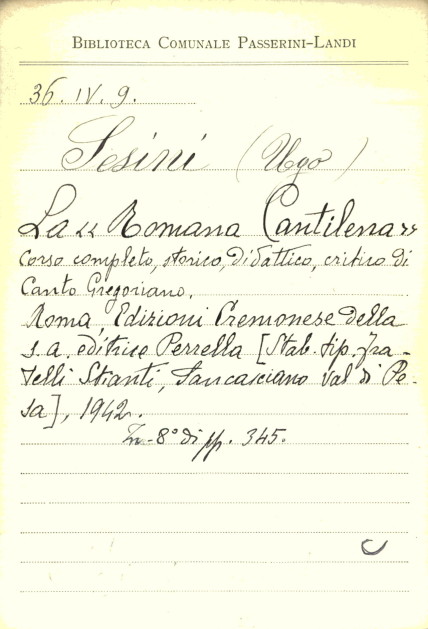 BIBLIOTECA COMUNALE PASSERINI-LANDI
36. IV. 9.
Sesini (Ugo)
La « Romana Cantilena »
Corso completo, storico, didattico, critico di
Canto Gregoriano.
Roma, Edizioni Cremonese della
s. a. editrice Perrella [Stab. tip. fra-
telli Stianti, Sancasciano Val di Pe-
sa], 1942.
In-8° di pp. 345.